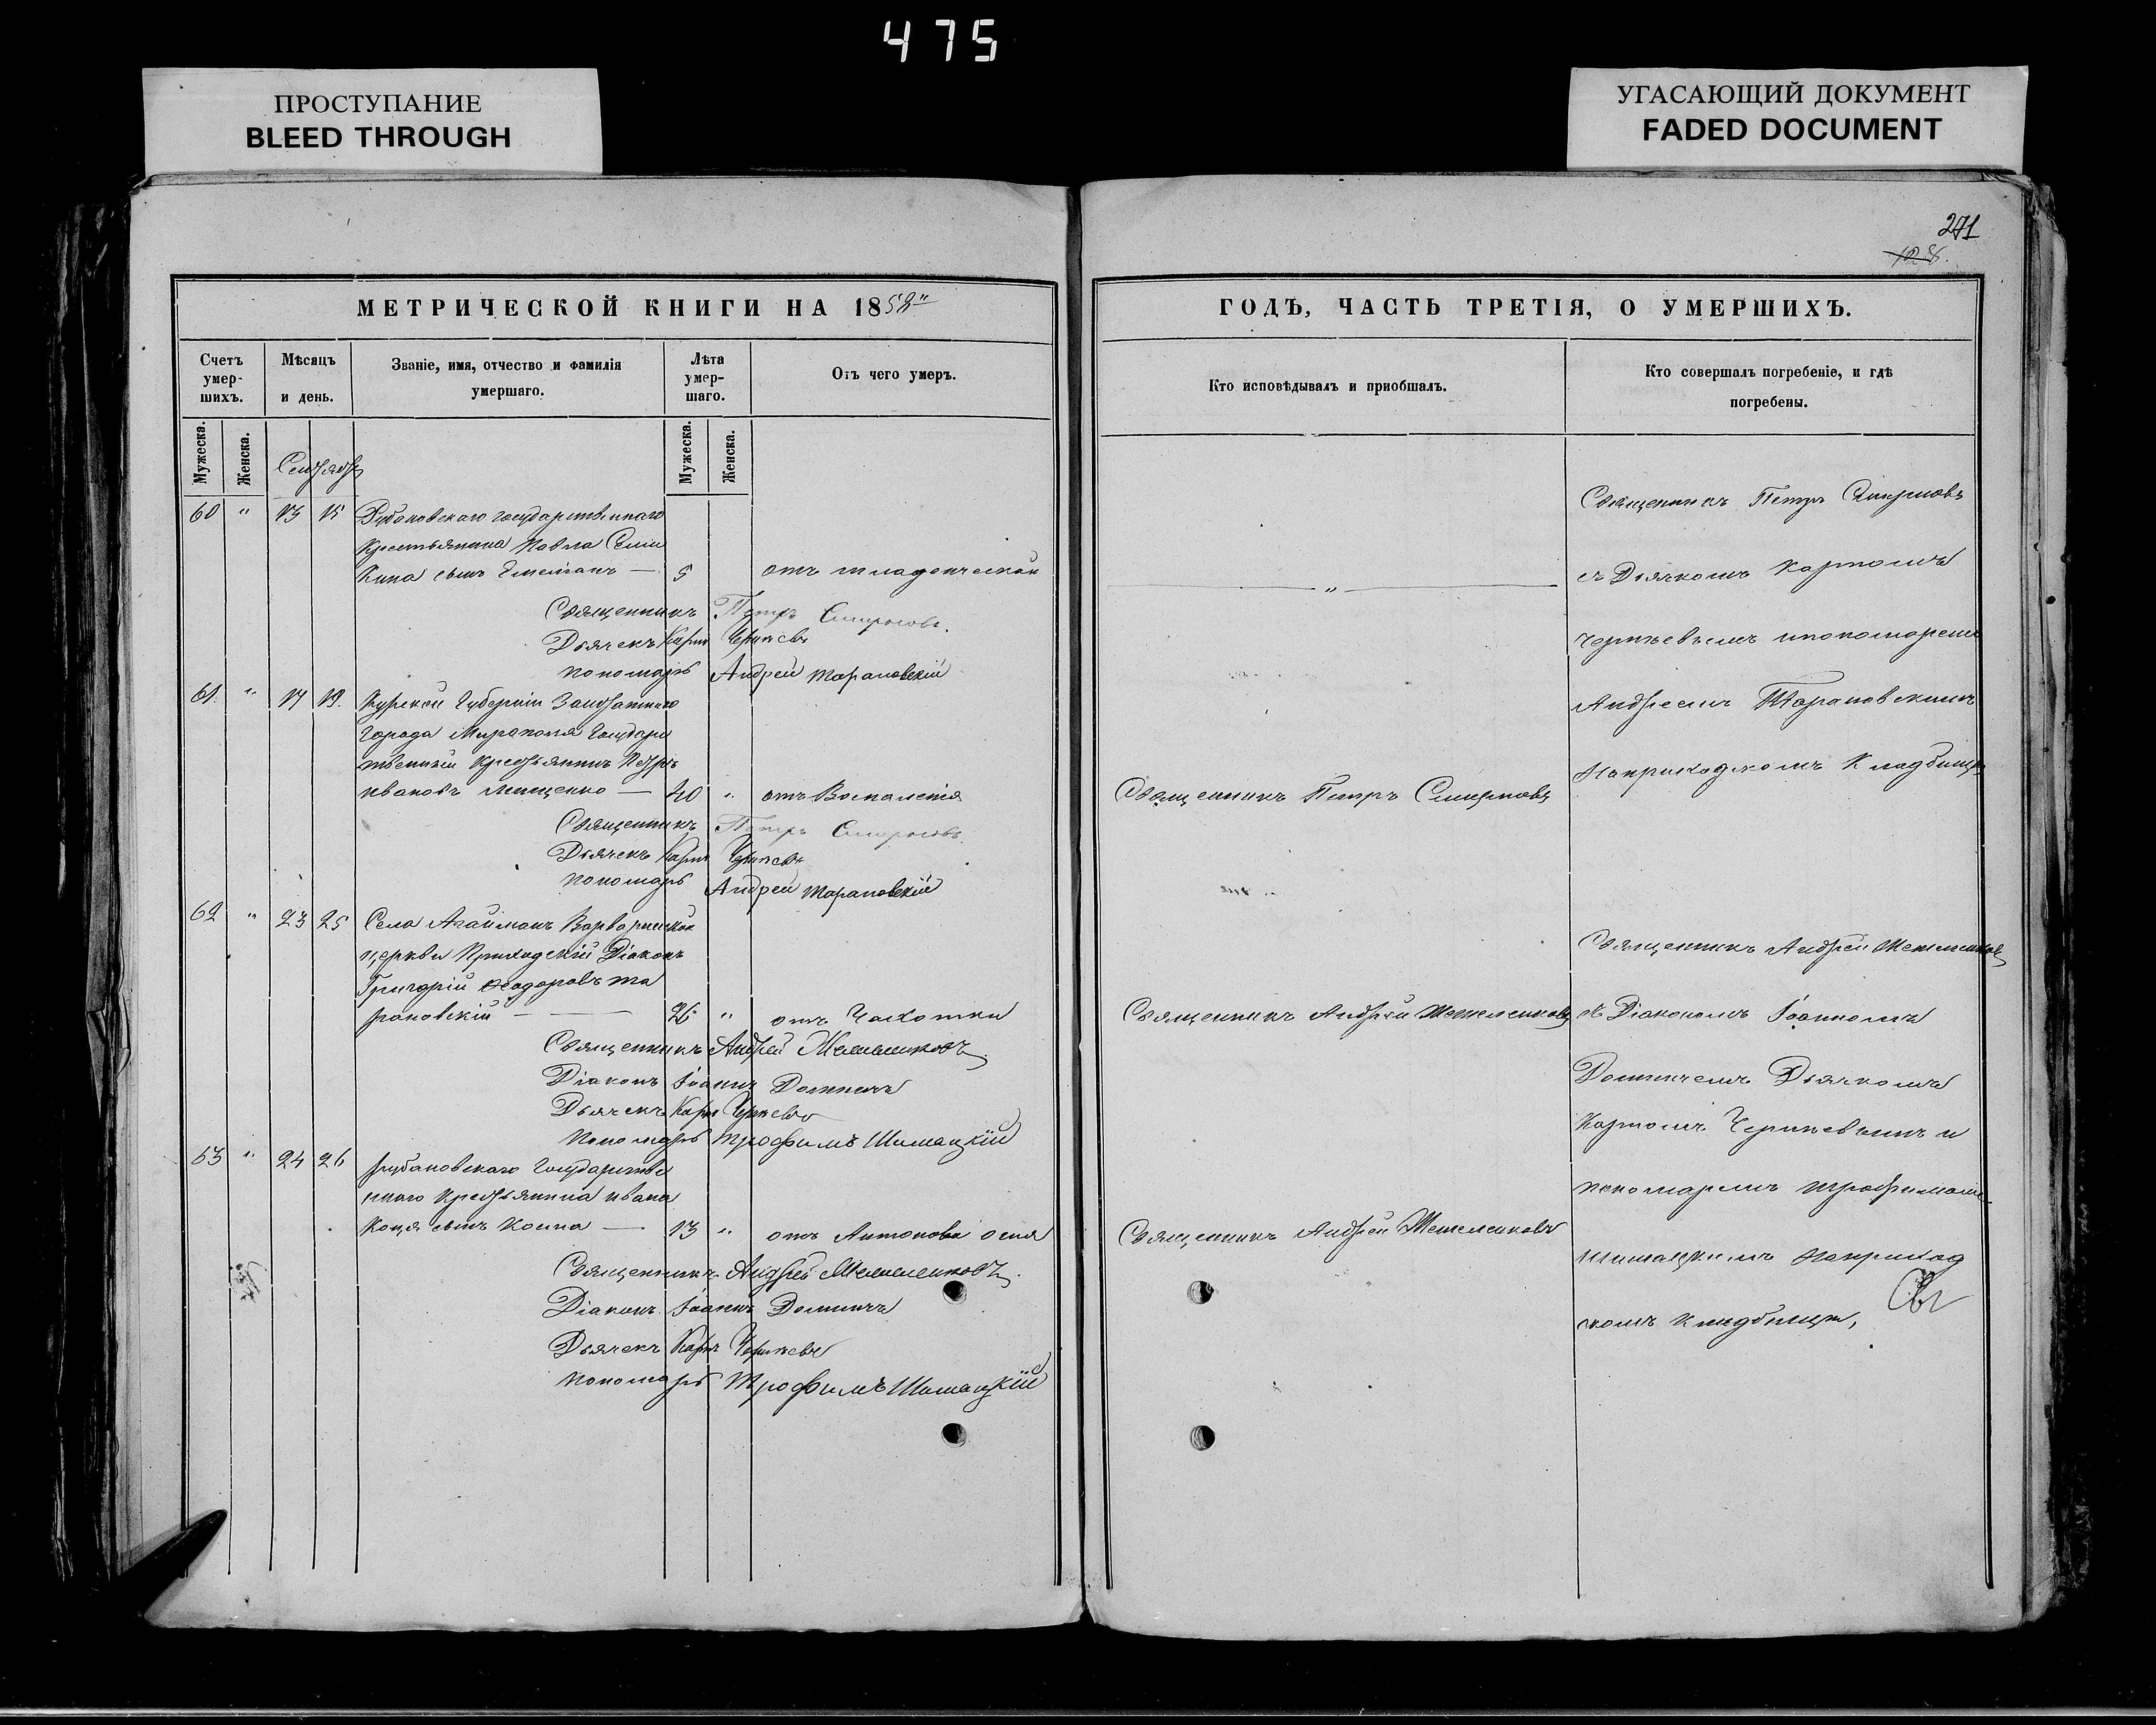 475
ПРОСТУПАНИЕ
BLEED THROUGH
УГАСАЮЩИЙ ДОКУМЕНТ
FADED DOCUMENT
271
МЕТРИЧЕСКОЙ КНИГИ НА 1858
Счетъ умер-шихъ.
Мѣсяцъ и день.
Званіе, имя, отчество и фамилія умершаго.
Лѣта умер-шаго.
Отъ чего умеръ.
Мужеска.
Женска.
Мужеска.
Женска.
60 " 13 15 Рубановскаго государственнаго
крестьянина Павла
сынъ Емеліанъ — 5 отъ младенческой
Священникъ Петръ Смирновъ.
Дьячекъ Карпъ Черняевъ
пономарь Андрей Тарановскій
61. " 17 19. Курской Губерніи Заштатнаго
Города Мирополя Государ
ственный Крестьянинъ Петръ
Ивановъ Мищенко — 40 " отъ Воспаленія
Священникъ Петръ Смирновъ
Дьячекъ Карпъ Черняевъ
пономарь Андрей Тарановскій
62 " 23 25 Села Агайманъ Варваринской
церкви Приходскій Діаконъ
Григорій Ѳеодоровъ Та
рановскій — 26 " отъ Чахотки
Священникъ Андрей
Діаконъ Іоаннъ
Дьячекъ Карпъ Черняевъ
Пономарь Трофимъ Шимацкій
63 " 24 26 Рубановскаго Государстве
ннаго Крестьянина Ивана
сынъ Косма — 13 " отъ Антонова огня
Священникъ Андрей
Діаконъ Іоаннъ
Дьячекъ Карпъ Черняевъ
пономарь Трофимъ Шимацкій
ГОДЪ, ЧАСТЬ ТРЕТІЯ, О УМЕРШИХЪ.
Кто исповѣдывалъ и пріобщалъ.
Кто совершалъ погребеніе, и гдѣ погребены.
Священникъ Петръ Смирновъ
съ Дьячкомъ Карпомъ
Черняевымъ и пономаремъ
Андреемъ Тарановскимъ
На приходскомъ Кладбищѣ
Священникъ Петръ Смирновъ
Священникъ Андрей
Священникъ Андрей
съ Діакономъ Іоанномъ
Дьячкомъ
Карпомъ Черняевымъ и
пономаремъ Трофимомъ
Шимацкимъ На приход
скомъ Кладбищѣ,
Священникъ Андрей